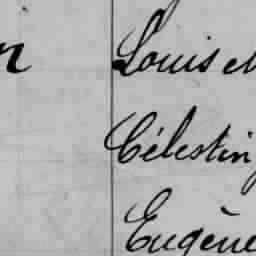 n Louis M
Célestin
Eugène